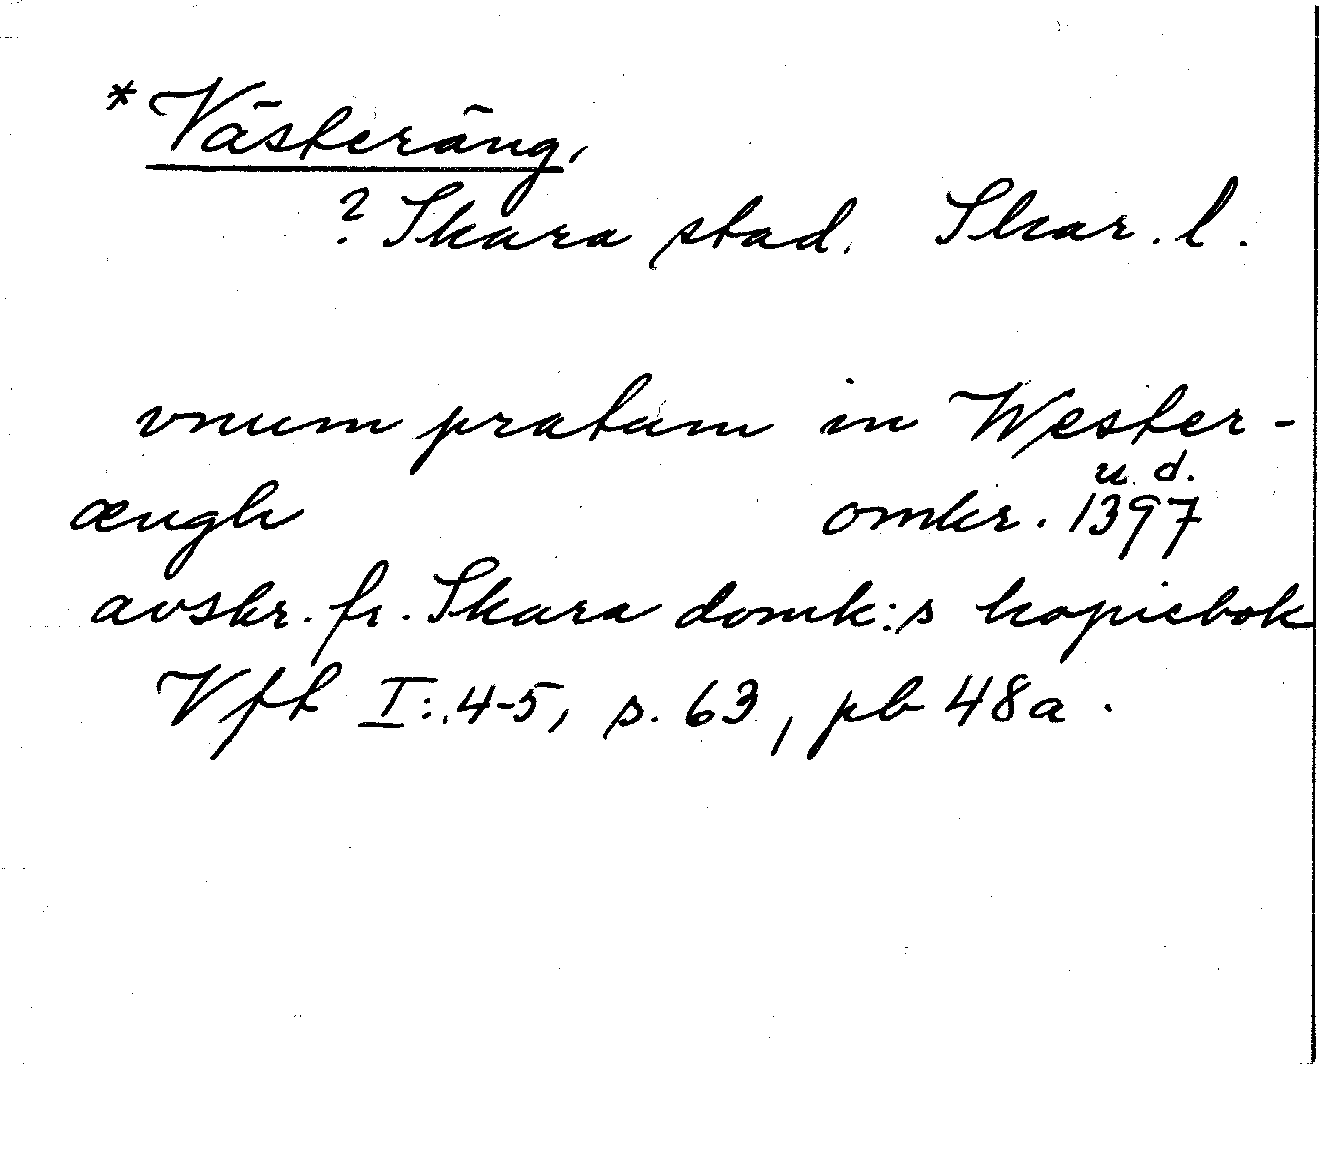 *Västeräng,
? Skara stad. Skar. l.
vnum pratum in Wester-
u. d.
ængh omkr. 1397
avskr. fr. Skara domk:s kopiebok
Vft I:4-5, s. 63, pb 48a.